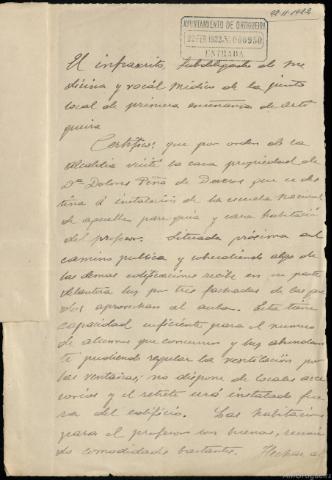 22 11 1922
AYUNTAMIENTO DE ORTIGUEIRA
22 FEB 1922 * 000950
ENTRADA
El infrascrito, Subdelegado de me
dicina y vocal Médico de la junta
local de primera enseñanza de Orti
gueira
Certifico: que por orden de la
Alcaldia visité la casa propiedad de
Dª Dolores Peña de que se des
tina á instalación de la escuela nacional
de aquella parroquia y casa habitación
del profesor. Situada próxima al
camino publico y sobresaliendo algo de
las demas edificaciones recibe en su parte
delantera luz por tres fachadas de las que
dos aprovechan al aula. Esta tiene
capacidad suficiente para el numero
de alumnos que concurren y luz abundan
te pudiendo regular la ventilación por
las ventanas; no dispone de locales acce
sorios y el retrete será instalado fue
ra del edificio. Las habitaciones
para el profesor son buenas, reunien
do comodidades bastantes. Hechas al